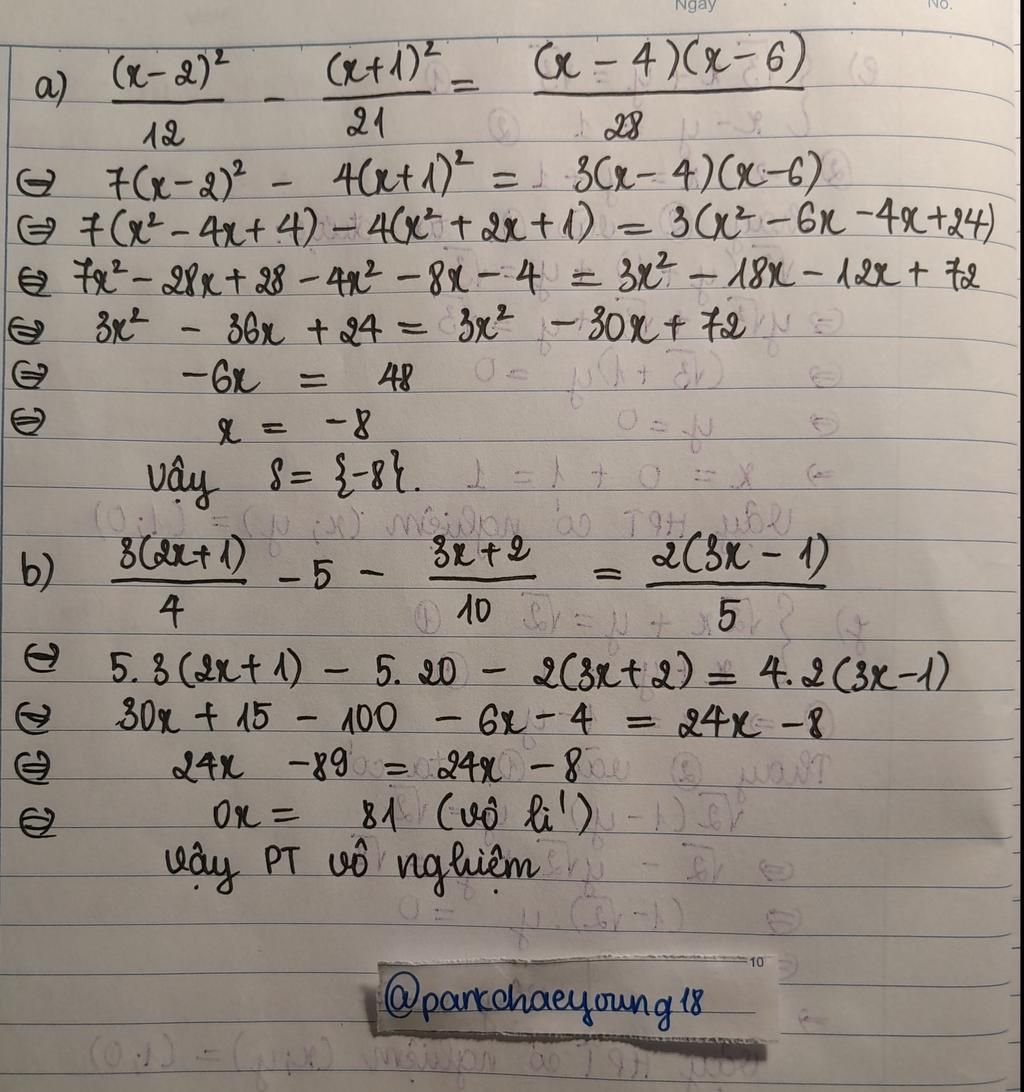 Ngày No.
a) (x-2)²/12 - (x+1)²/21 = (x-4)(x-6)/28
⇔ 7(x-2)² - 4(x+1)² = 3(x-4)(x-6)
⇔ 7(x²-4x+4) - 4(x²+2x+1) = 3(x²-6x-4x+24)
⇔ 7x²-28x+28-4x²-8x-4 = 3x²-18x-12x+72
⇔ 3x² - 36x + 24 = 3x² - 30x + 72
⇔ -6x = 48
⇔ x = -8
Vậy S = {-8}.
b) 3(2x+1)/4 - 5 - 3x+2/10 = 2(3x-1)/5
⇔ 5.3(2x+1) - 5.20 - 2(3x+2) = 4.2(3x-1)
⇔ 30x + 15 - 100 - 6x - 4 = 24x - 8
⇔ 24x - 89 = 24x - 8
⇔ 0x = 81 (vô lí)
Vậy PT vô nghiệm
10
@parkchaeyoung18